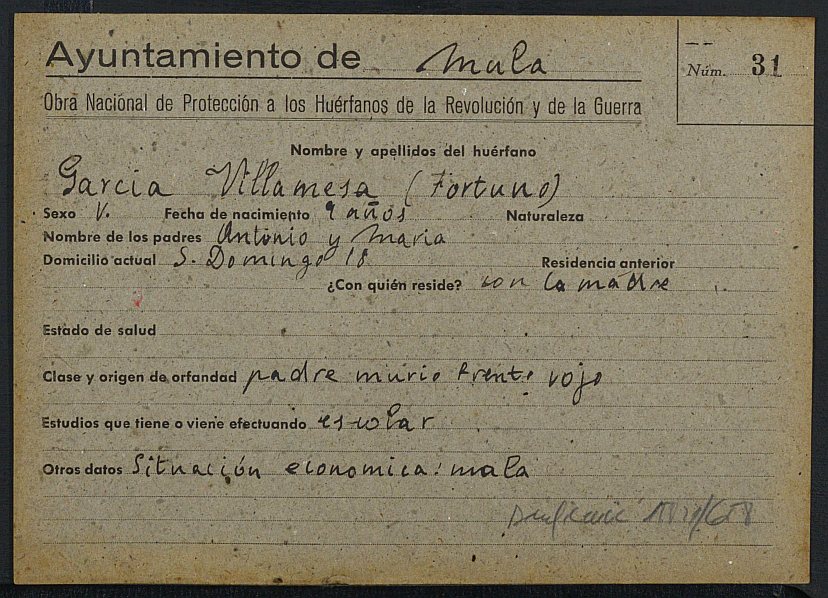 Ayuntamiento de Mula
Núm. 31
Obra Nacional de Protección a los Huérfanos de la Revolución y de la Guerra
Nombre y apellidos del huérfano
Garcia Villamesa (Fortuno)
Sexo V. Fecha de nacimiento 9 años Naturaleza
Nombre de los padres Antonio y Maria
Domicilio actual S. Domingo 18 Residencia anterior
¿Con quién reside? con la madre
Estado de salud
Clase y origen de orfandad padre murio frente rojo
Estudios que tiene o viene efectuando escolar
Otros datos Situación economica: mala